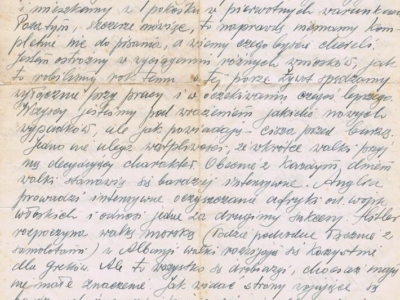 i mieszkamy w 1 pokoiku w pierwotnych warunkach
Poza tym, szczerze mówiąc, to naprawdę niemamy kom-
pletnie nic do pisania, a wiemy czego byście chcieli.
Jestem ostrożny w wyciąganiu różnych wniosków, jak
to robiliśmy rok temu w tej porze. Żywot spędzamy
wyłącznie przy pracy i w oczekiwaniu czegoś lepszego.
Wszyscy jesteśmy pod wrażeniem jakichś nowych
wypadków, ale jak powiadają - cisza przed burzą.
Jedno nie ulega wątpliwości, że wkrótce walki przyj-
mą decydujący charakter. Obecnie z każdym dniem
walki stanowią się bardziej intensywne. Anglia
prowadzi intensywne oczyszczanie Afryki od wojsk
włoskich i odnosi jeden za drugim sukcesy. Hitler
rozpoczyna walkę morską (łodzie podwodne łącznie z
samolotami) w Albanji walki rozwijają się korzystnie
dla Greków. Ale to wszystko są drobiazgi, chociaż mają
nie małe znaczenie. Jak widać strony wojujące są